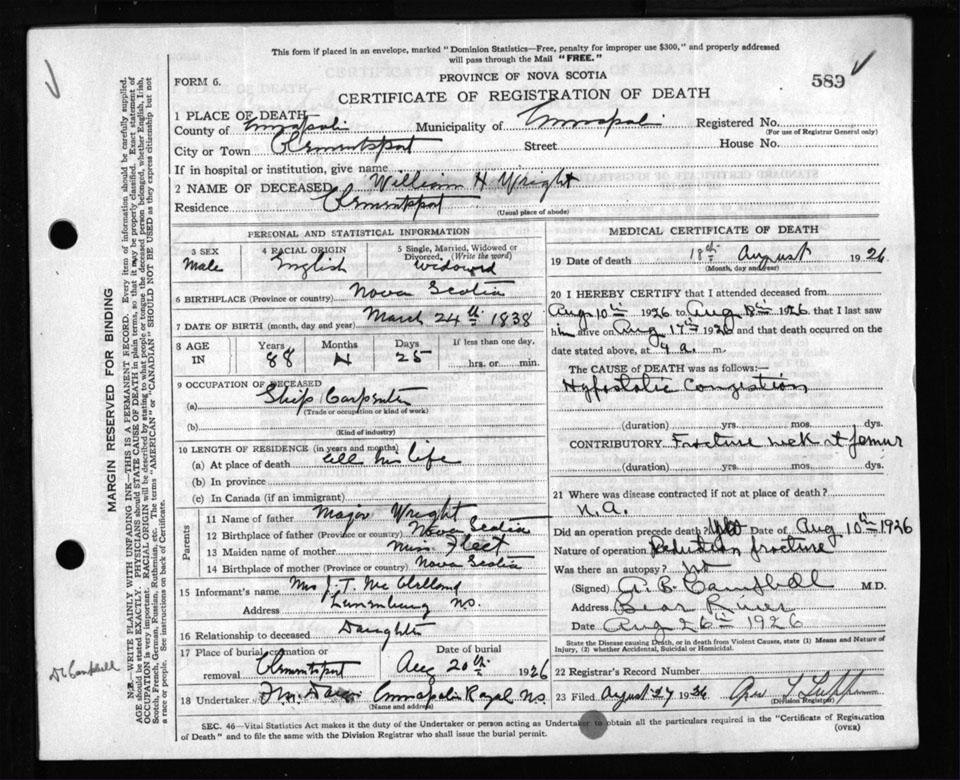 This form if placed in an envelope, marked "Dominion Statistics—Free, penalty for improper use $300," and properly addressed
will pass through the Mail "FREE."
FORM 6.
PROVINCE OF NOVA SCOTIA
589
CERTIFICATE OF REGISTRATION OF DEATH
1 PLACE OF DEATH
County of Annapolis Municipality of Annapolis Registered No.
(For use of Registrar General only)
City or Town Clementsport Street House No.
If in hospital or institution, give name
2 NAME OF DECEASED William H Wright
Residence Clementsport
(Usual place of abode)
PERSONAL AND STATISTICAL INFORMATION
3 SEX 4 RACIAL ORIGIN 5 Single, Married, Widowed or Divorced, (Write the word)
Male English Widowed
6 BIRTHPLACE (Province or country) Nova Scotia
7 DATE OF BIRTH (month, day and year) March 24th 1838
8 AGE IN Years Months Days If less than one day,
88 4 25 hrs. or min.
9 OCCUPATION OF DECEASED
(a) Ship Carpenter
(Trade or occupation or kind of work)
(b)
(Kind of industry)
10 LENGTH OF RESIDENCE (in years and months)
(a) At place of death all his life
(b) In province
(c) In Canada (if an immigrant)
Parents
11 Name of father Major Wright
12 Birthplace of father (Province or country) Nova Scotia
13 Maiden name of mother Miss Fleet
14 Birthplace of mother (Province or country) Nova Scotia
15 Informant's name Mrs J. T. McClelland
Address Lunenburg N.S.
16 Relationship to deceased Daughter
17 Place of burial, cremation or removal Date of burial
Clementsport Aug 20th 1926
18 Undertaker Annapolis Royal N.S.
(Name and address)
MEDICAL CERTIFICATE OF DEATH
19 Date of death 18th August 1926
(Month, day and year)
20 I HEREBY CERTIFY that I attended deceased from
Aug 10th 1926 to Aug 18th 1926, that I last saw
him alive on Aug 17th 1926 and that death occurred on the
date stated above, at 4 a. m.
The CAUSE of DEATH was as follows:—
Hypostatic Congestion
(duration) yrs. mos. dys.
CONTRIBUTORY Fracture neck of femur
(duration) yrs. mos. dys.
21 Where was disease contracted if not at place of death?
N.A.
Did an operation precede death? Date of Aug 10th 1926
Nature of operation Reduction fracture
Was there an autopsy?
(Signed) A. B. Campbell M.D.
Address Bear River
Date Aug 26th 1926
State the Disease causing Death, or in death from Violent Causes, state (1) Means and Nature of
Injury, (2) whether Accidental, Suicidal or Homicidal.
22 Registrar's Record Number
23 Filed August 27 1926
(Division Registrar)
SEC. 46—Vital Statistics Act makes it the duty of the Undertaker or person acting as Undertaker to obtain all the particulars required in the "Certificate of Registration
of Death" and to file the same with the Division Registrar who shall issue the burial permit.
(OVER)
MARGIN RESERVED FOR BINDING
N.B.—WRITE PLAINLY WITH UNFADING INK—THIS IS A PERMANENT RECORD. Every item of information should be carefully supplied.
AGE should be stated EXACTLY. PHYSICIANS should STATE CAUSE OF DEATH in plain terms, so that it may be properly classified. Exact statement of
OCCUPATION is very important. RACIAL ORIGIN will be described by stating to what people or tongue the deceased person belonged, whether English, Irish,
Scotch, French, German, Russian, Ruthenian, etc. The terms "AMERICAN" or "CANADIAN" SHOULD NOT BE USED as they express citizenship but not
a race or people. See instructions on back of Certificate.
Dr Campbell